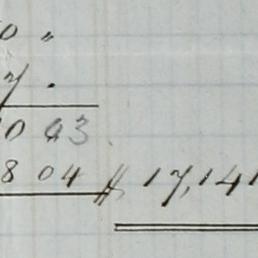 0 "
7 .
0 93
8 04 $ 17,141